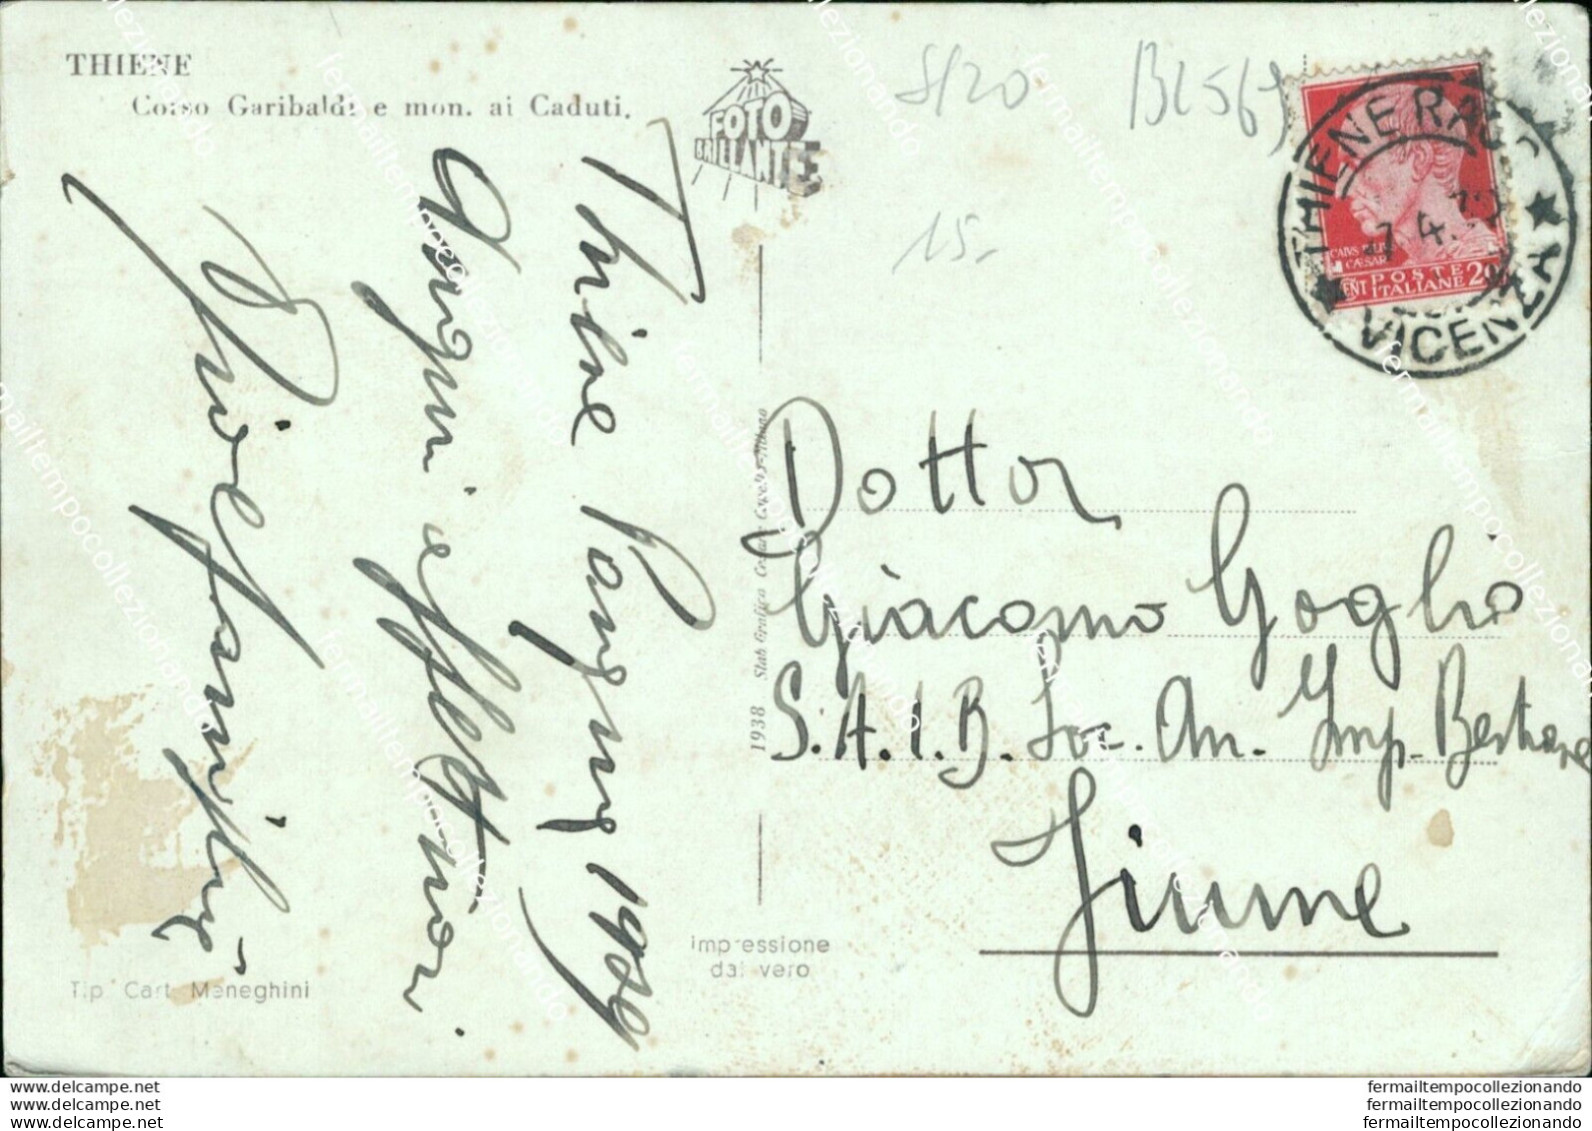 THIENE
Corso Garibaldi e mon. ai Caduti.
FOTO
BRILLANTE
S/20
BL569
15.-
THIENE RAC
VICENZA
7 4
CAIVS IVLIVS
CAESAR
CENT POSTE
ITALIANE 20
Thiene Pasqua 1939
Auguri affettuosi
famiglia
Dottor
Giacomo Goglio
S.A.I.B. Soc. An. Imp. Bestiame
Fiume
1938 Stab Grafico Cesare Capello-Milano
Impressione
dal vero
Tip Cart Meneghini
www.delcampe.net
www.delcampe.net
www.delcampe.net
fermailtempocollezionando
fermailtempocollezionando
fermailtempocollezionando